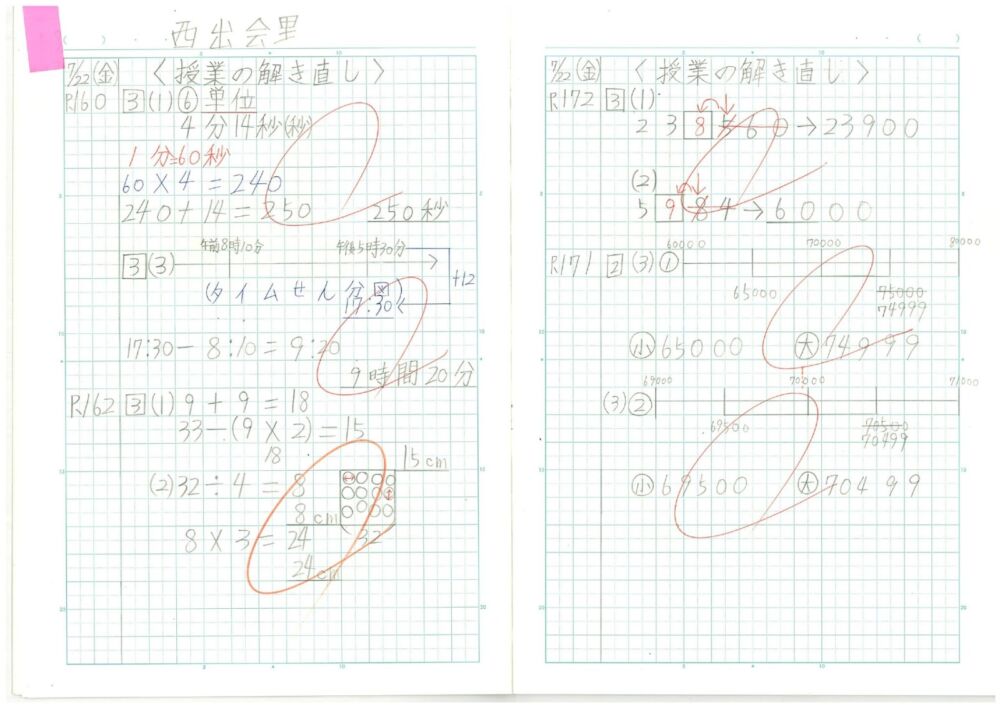 西出会里
7/22(金) 〈授業の解き直し〉
P.160 3(1)⑥単位
4分14秒(秒)
1分=60秒
60×4=240
240+14=250
250秒
午前8時10分 午後5時30分
3(3)
+12
(タイムせん分図)
17:30
17:30-8:10=9:20
9時間20分
P.162 3(1) 9+9=18
33-(9×2)=15
18
15cm
(2)32÷4=8
8cm
8×3=24
32
24cm
7/22(金) 〈授業の解き直し〉
P.172 3(1)
238560→23900
(2)
5984→6000
60000 70000 80000
P.171 2(3)①
65000 75000
74999
小65000 大74999
69000 70000 71000
(3)②
69500 70500
70499
小69500 大70499